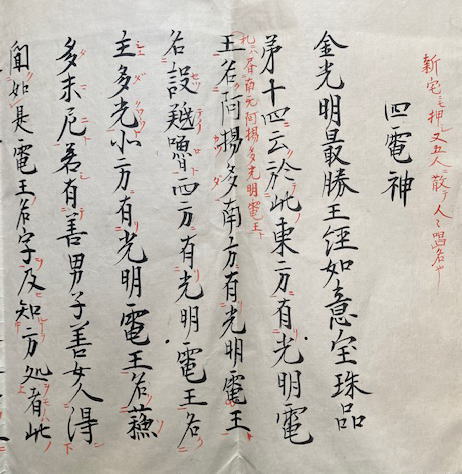 新宅ニ押又五人散テ人々唱名
四電神
金光明最勝王経如意宝珠品
弟十四云於此東方有光明電
南无阿揭多光明電王
王名阿揭多南方有光明電王
名設嚕西方有光明電王名
主多光北方有光明電王名蘓
多末尼若有善男子善女人得
聞如是電王名字及知方処者此